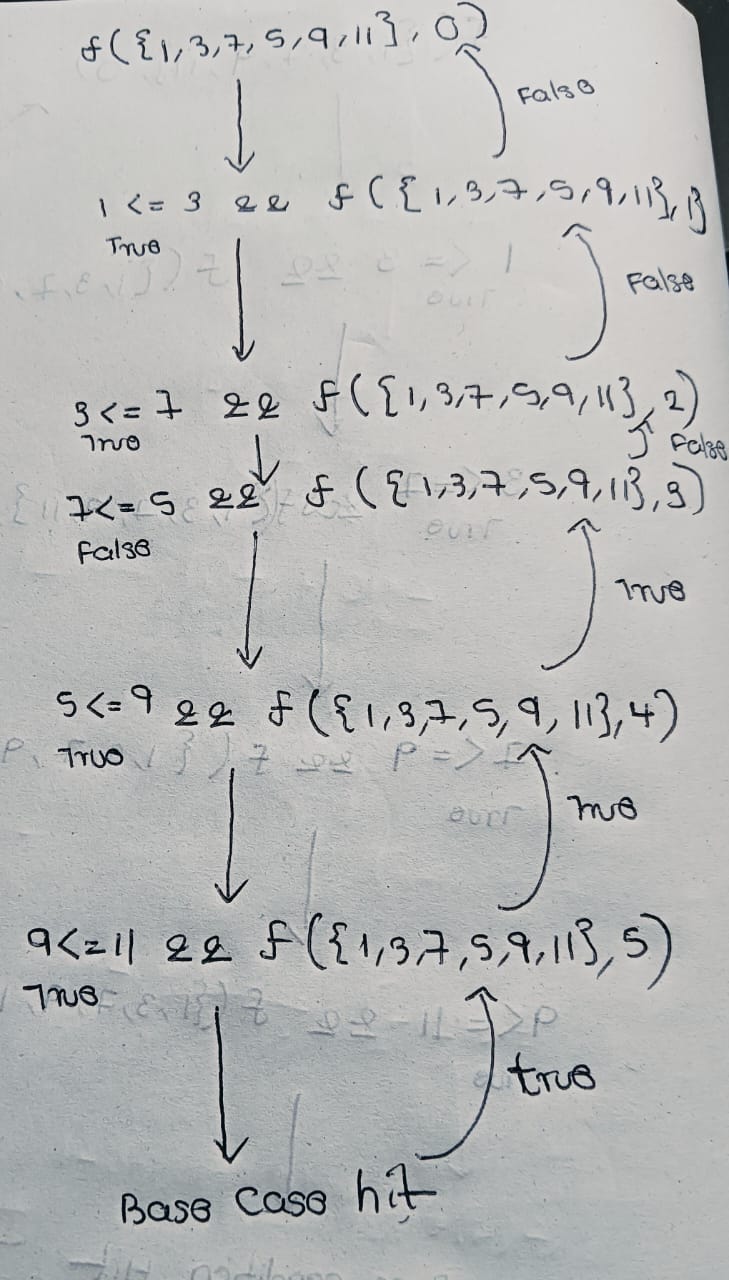 f({1,3,7,5,9,11},0)
False
1 <= 3 && f({1,3,7,5,9,11},1)
True
False
3 <= 7 && f({1,3,7,5,9,11},2)
True
False
7<=5 && f({1,3,7,5,9,11},3)
False
True
5<=9 && f({1,3,7,5,9,11},4)
True
True
9<=11 && f({1,3,7,5,9,11},5)
True
true
Base case hit